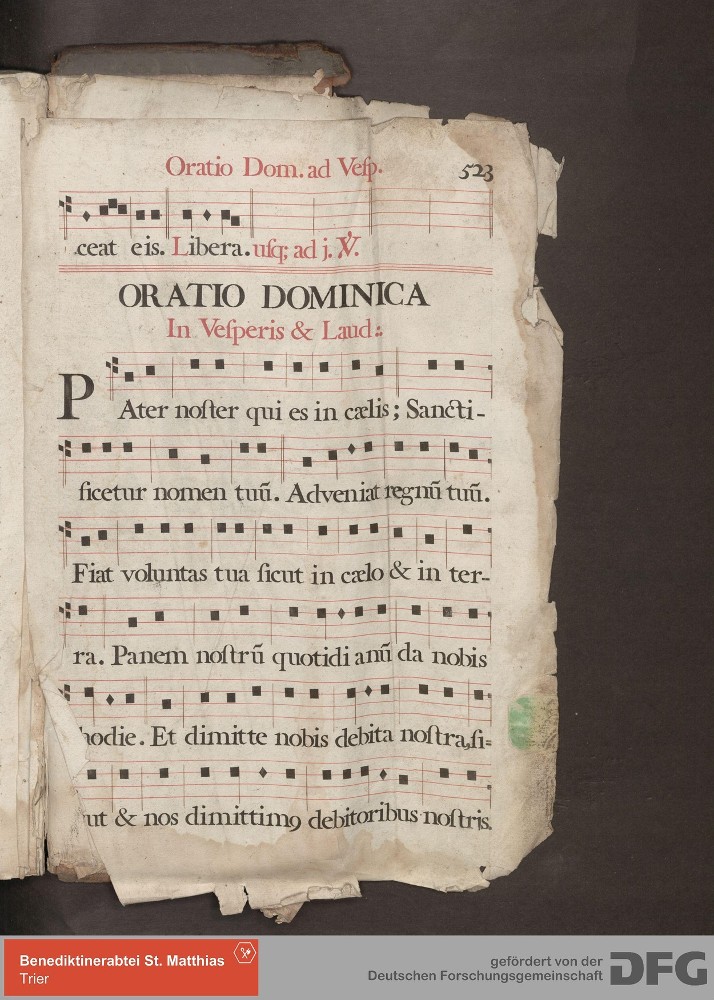 Oratio Dom. ad Veſp. 523
ceat eis. Libera. uſq; ad j. ℣.
ORATIO DOMINICA
In Veſperis & Laud:.
PAter noſter qui es in cælis; Sancti-
ficetur nomen tuū. Adveniat regnū tuū.
Fiat voluntas tua ſicut in cælo & in ter-
ra. Panem noſtrū quotidianū da nobis
hodie. Et dimitte nobis debita noſtra, ſi=
ut & nos dimittimꝰ debitoribus noſtris.
Benediktinerabtei St. Matthias
Trier
gefördert von der
Deutschen Forschungsgemeinschaft DFG